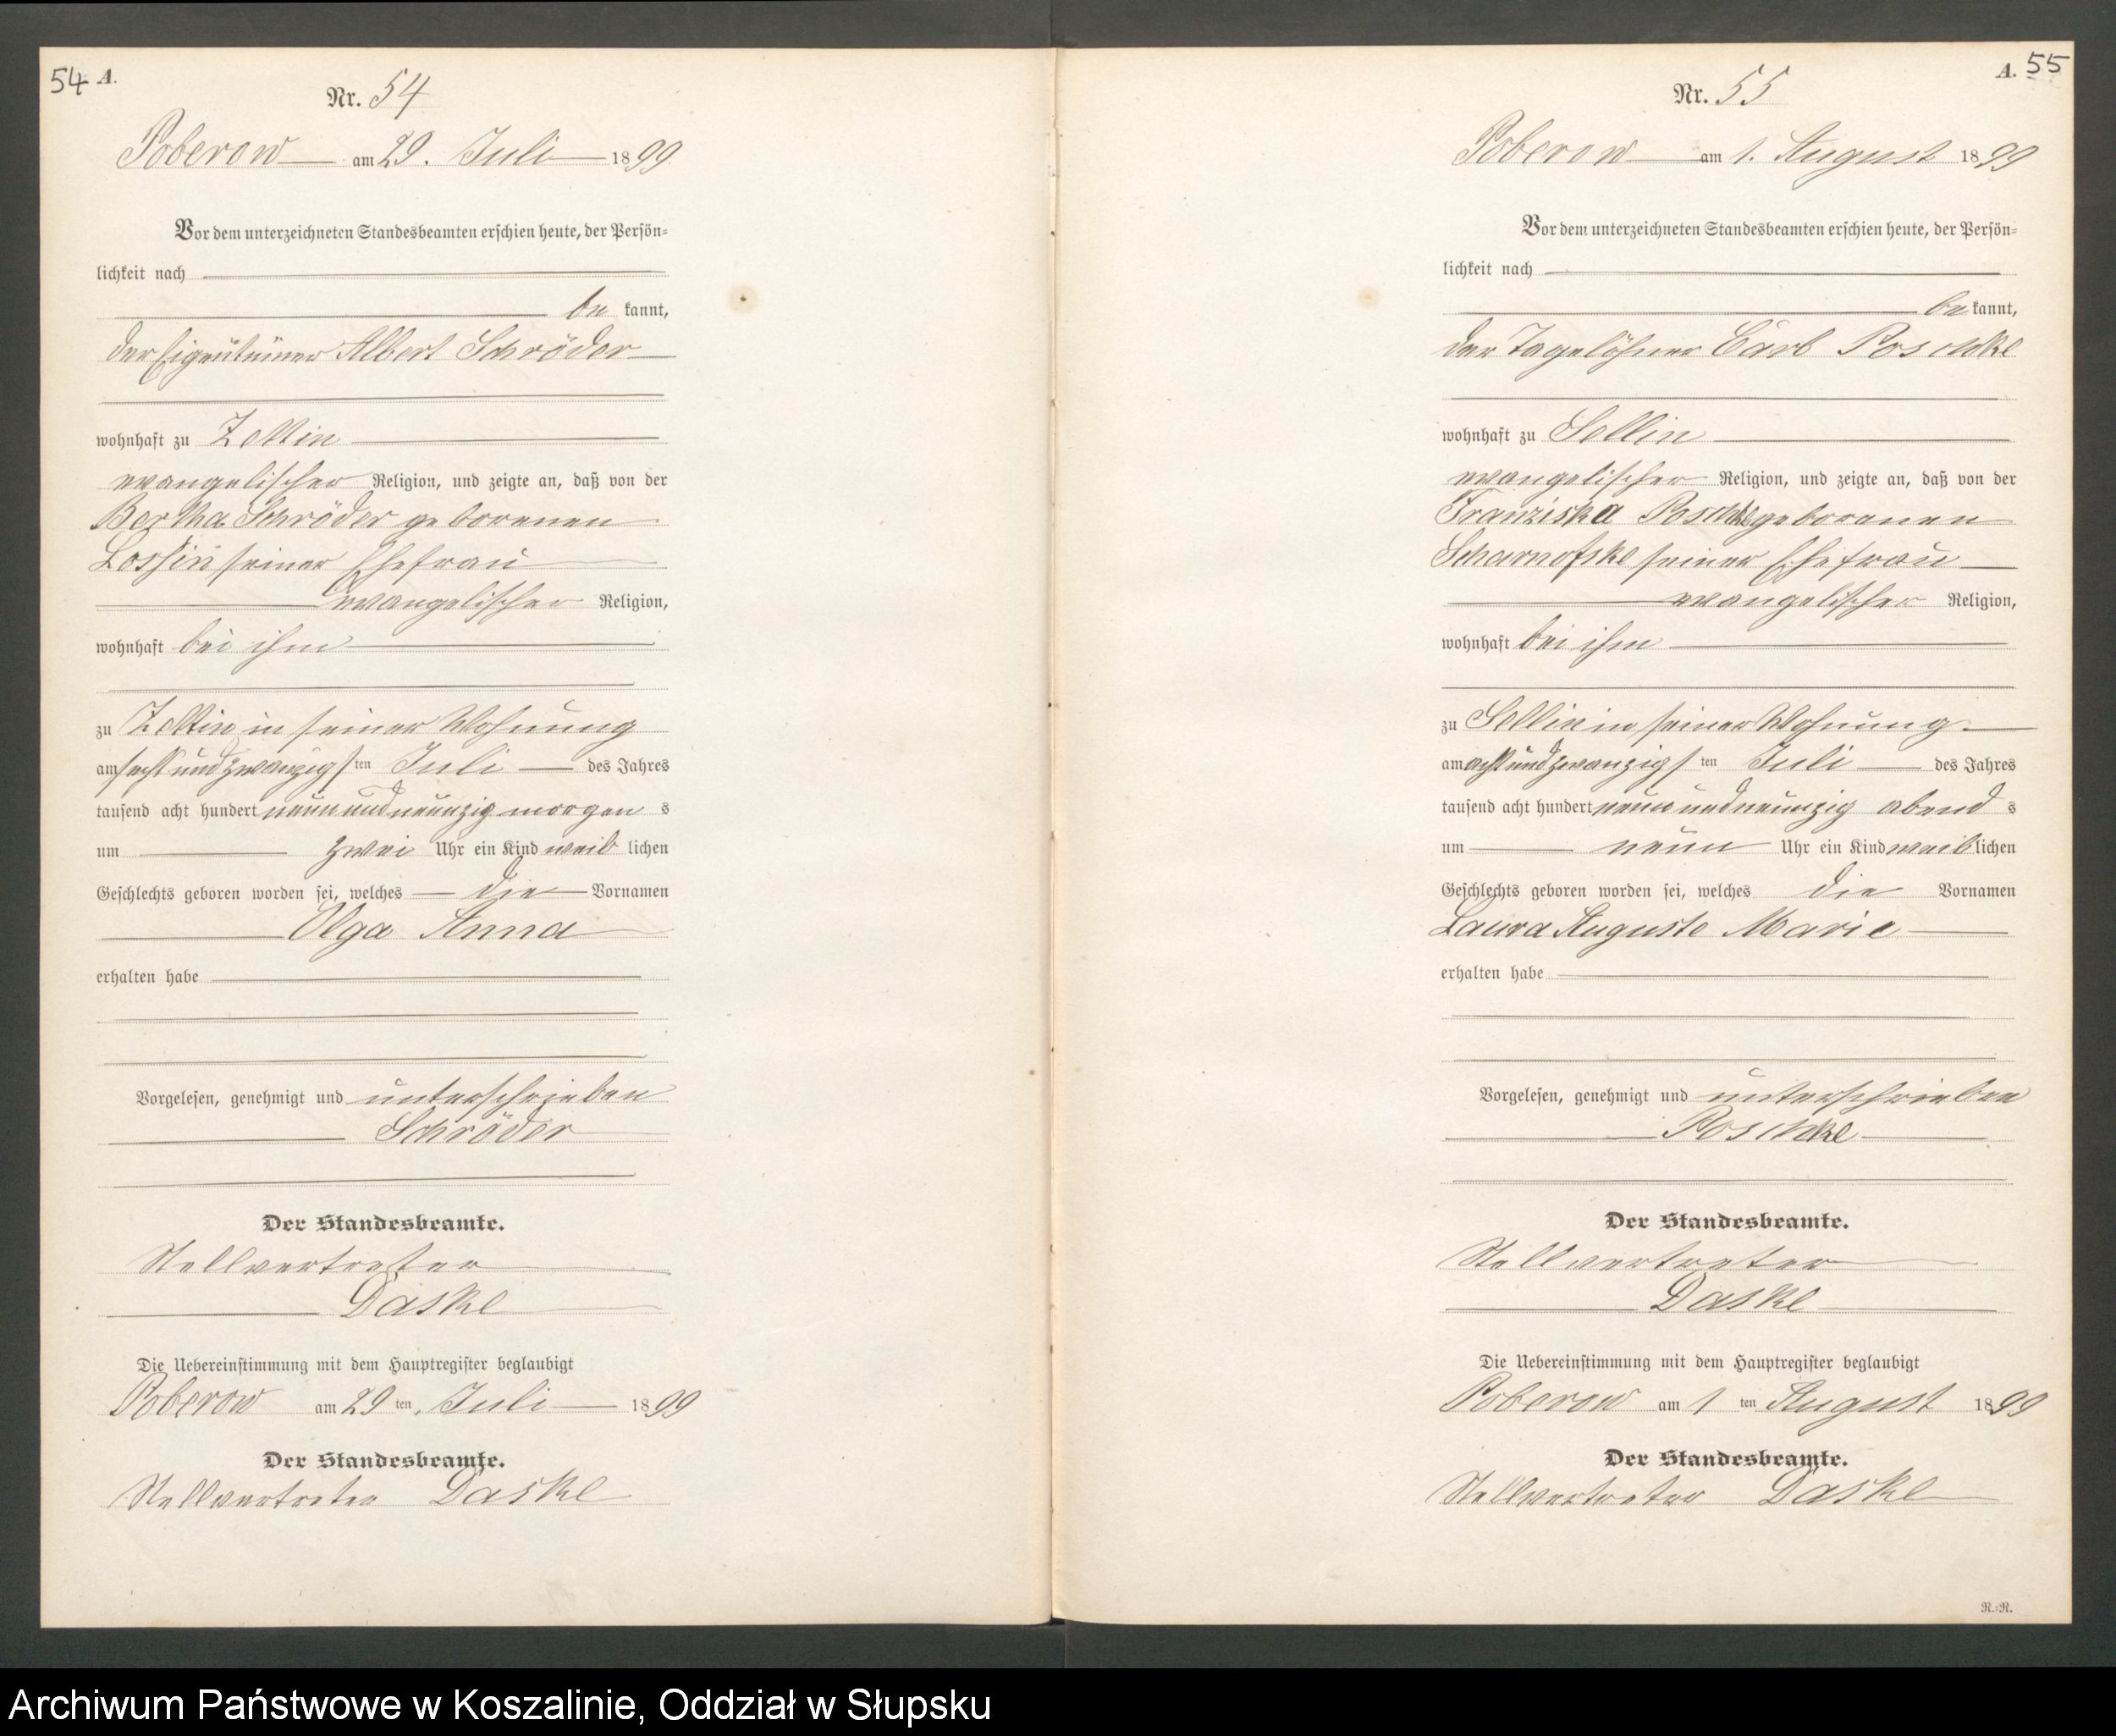 54 A.
Nr. 54
Poberow am 29. Juli 1899
Vor dem unterzeichneten Standesbeamten erschien heute, der Persön-
lichkeit nach
be kannt,
der Eigentümer Albert Schröder
wohnhaft zu Zettin
evangelischer Religion, und zeigte an, daß von der
Bertha Schröder geborenen
Lossin seiner Ehefrau
evangelischer Religion,
wohnhaft bei ihm
zu Zettin in seiner Wohnung
am sechsundzwanzigsten Juli des Jahres
tausend acht hundert neunundneunzig morgens
um zwei Uhr ein Kind weiblichen
Geschlechts geboren worden sei, welches die Vornamen
Olga Anna
erhalten habe
Vorgelesen, genehmigt und unterschrieben
Schröder
Der Standesbeamte.
Stellvertreter
Daske
Die Uebereinstimmung mit dem Hauptregister beglaubigt
Poberow am 29ten Juli 1899
Der Standesbeamte.
Stellvertreter Daske
A. 55
Nr. 55
Poberow am 1. August 1899
Vor dem unterzeichneten Standesbeamten erschien heute, der Persön-
lichkeit nach
be kannt,
der Tagelöhner Carl Poschke
wohnhaft zu Sellin
evangelischer Religion, und zeigte an, daß von der
Franziska Poschke geborenen
Scharnofske seiner Ehefrau
evangelischer Religion,
wohnhaft bei ihm
zu Sellin in seiner Wohnung
am achtundzwanzigsten Juli des Jahres
tausend acht hundert neunundneunzig abends
um neun Uhr ein Kind weiblichen
Geschlechts geboren worden sei, welches die Vornamen
Laura Auguste Marie
erhalten habe
Vorgelesen, genehmigt und unterschrieben
Poschke
Der Standesbeamte.
Stellvertreter
Daske
Die Uebereinstimmung mit dem Hauptregister beglaubigt
Poberow am 1ten August 1899
Der Standesbeamte.
Stellvertreter Daske
R.-R.
Archiwum Państwowe w Koszalinie, Oddział w Słupsku